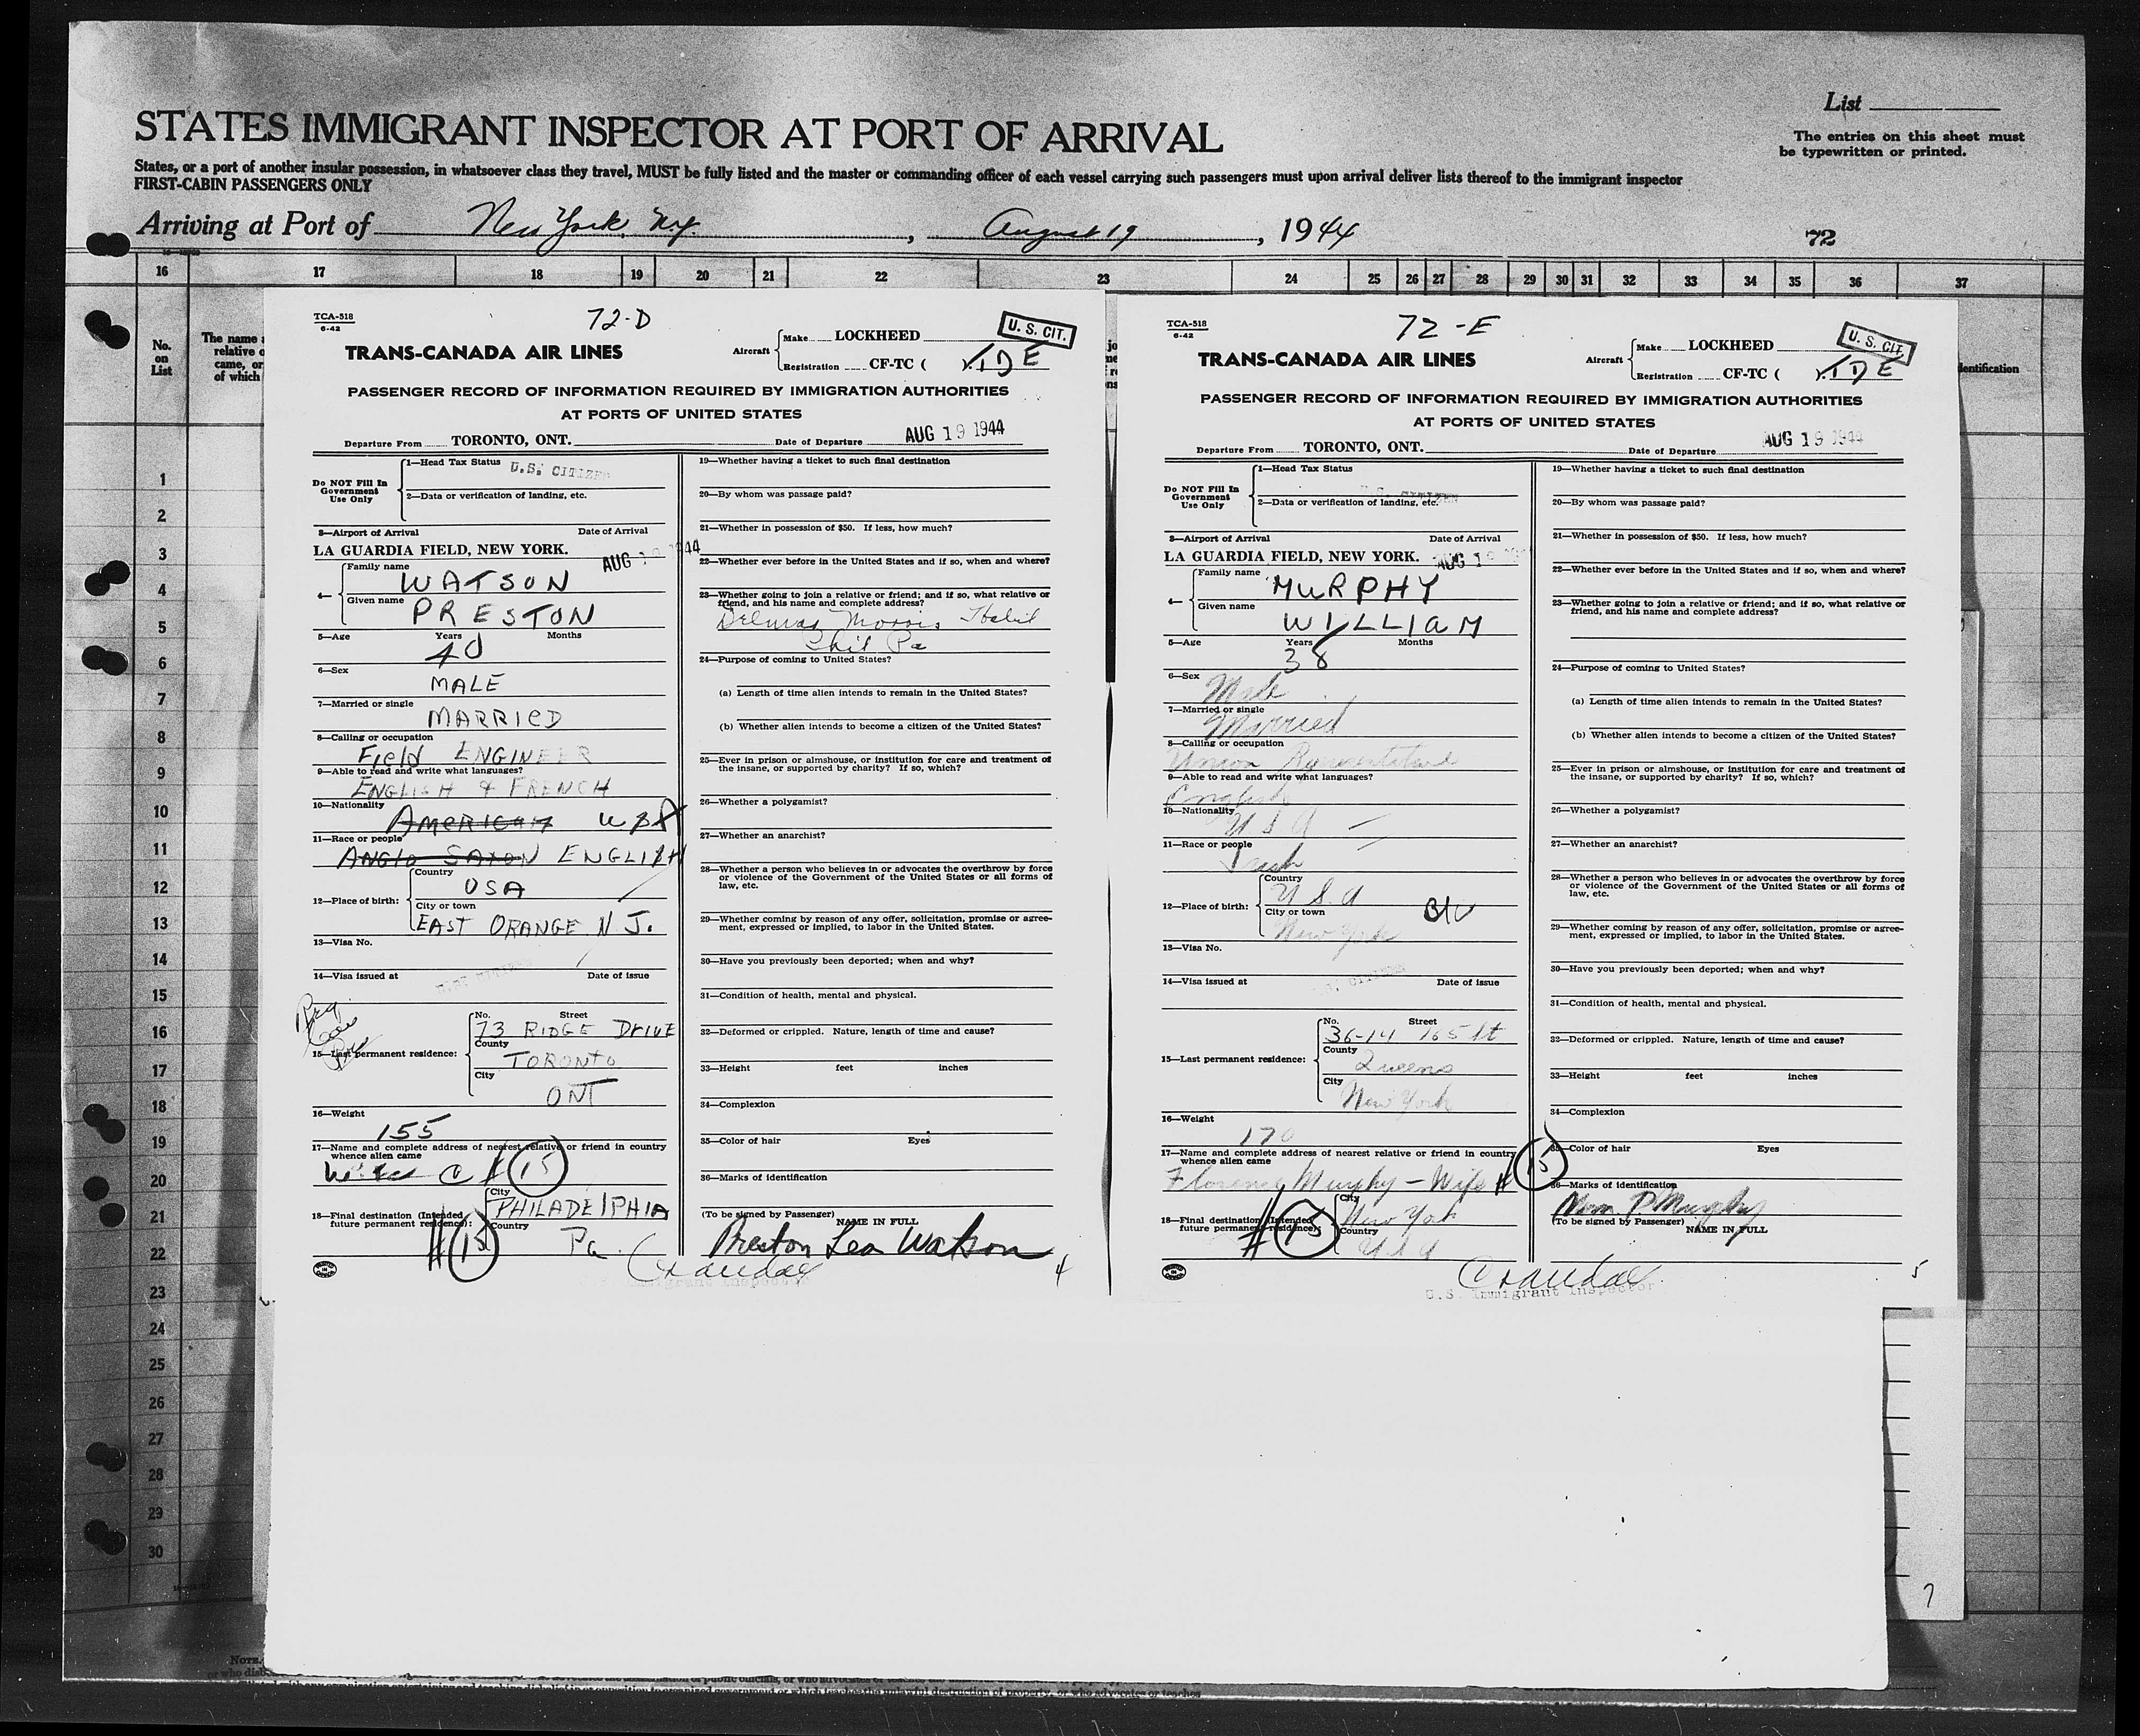 List
STATES IMMIGRANT INSPECTOR AT PORT OF ARRIVAL
The entries on this sheet must
be typewritten or printed.
States, or a port of another insular possession, in whatsoever class they travel, MUST be fully listed and the master or commanding officer of each vessel carrying such passengers must upon arrival deliver lists thereof to the immigrant inspector
FIRST-CABIN PASSENGERS ONLY
Arriving at Port of New York, N.Y. , August 19 , 1944
72
16 17 18 19 20 21 22 23 24 25 26 27 28 29 30 31 32 33 34 35 36 37
No.
on
List
The name
relative o
came, or
of which
1
2
3
4
5
6
7
8
9
10
11
12
13
14
15
16
17
18
19
20
21
22
23
24
25
26
27
28
29
30
TCA-518
6-42
72-D
U. S. CIT.
TRANS-CANADA AIR LINES
Aircraft
Make LOCKHEED
Registration CF-TC ( ). TDE
PASSENGER RECORD OF INFORMATION REQUIRED BY IMMIGRATION AUTHORITIES
AT PORTS OF UNITED STATES
Departure From TORONTO, ONT. Date of Departure AUG 19 1944
Do NOT Fill In
Government
Use Only
1—Head Tax Status U.S. CITIZEN
2—Data or verification of landing, etc.
3—Airport of Arrival Date of Arrival
LA GUARDIA FIELD, NEW YORK. AUG 19 1944
4—
Family name WATSON
Given name PRESTON
5—Age Years Months
40
6—Sex
MALE
7—Married or single
MARRIED
8—Calling or occupation
Field ENGINEER
9—Able to read and write what languages?
ENGLISH & FRENCH
10—Nationality
AMERICAN USA
11—Race or people
ANGLO SAXON ENGLISH
12—Place of birth:
Country
USA
City or town
EAST ORANGE N J.
13—Visa No.
14—Visa issued at Date of issue
U.S. CITIZEN
15—Last permanent residence:
No. Street
73 RIDGE DRIVE
County
TORONTO
City
ONT
16—Weight
155
17—Name and complete address of nearest relative or friend in country
whence alien came
# 15
18—Final destination (Intended
future permanent residence):
City
PHILADELPHIA
Country
Pa.
# 15
19—Whether having a ticket to such final destination
20—By whom was passage paid?
21—Whether in possession of $50. If less, how much?
22—Whether ever before in the United States and if so, when and where?
23—Whether going to join a relative or friend; and if so, what relative or
friend, and his name and complete address?
Morris
Phil Pa
24—Purpose of coming to United States?
(a) Length of time alien intends to remain in the United States?
(b) Whether alien intends to become a citizen of the United States?
25—Ever in prison or almshouse, or institution for care and treatment of
the insane, or supported by charity? If so, which?
26—Whether a polygamist?
27—Whether an anarchist?
28—Whether a person who believes in or advocates the overthrow by force
or violence of the Government of the United States or all forms of
law, etc.
29—Whether coming by reason of any offer, solicitation, promise or agree-
ment, expressed or implied, to labor in the United States.
30—Have you previously been deported; when and why?
31—Condition of health, mental and physical.
32—Deformed or crippled. Nature, length of time and cause?
33—Height feet inches
34—Complexion
35—Color of hair Eyes
36—Marks of identification
(To be signed by Passenger) NAME IN FULL
Preston Leo Watson
Crandall
U.S. Immigrant Inspector
4
TCA-518
6-42
72-E
U. S. CIT.
TRANS-CANADA AIR LINES
Aircraft
Make LOCKHEED
Registration CF-TC ( ). TDE
PASSENGER RECORD OF INFORMATION REQUIRED BY IMMIGRATION AUTHORITIES
AT PORTS OF UNITED STATES
Departure From TORONTO, ONT. Date of Departure AUG 19 1944
Do NOT Fill In
Government
Use Only
1—Head Tax Status
U.S. CITIZEN
2—Data or verification of landing, etc.
3—Airport of Arrival Date of Arrival
LA GUARDIA FIELD, NEW YORK. AUG 19
4—
Family name MURPHY
Given name WILLIAM
5—Age Years Months
38
6—Sex
Male
7—Married or single
Married
8—Calling or occupation
Union Representative
9—Able to read and write what languages?
English
10—Nationality
U S A
11—Race or people
Irish
12—Place of birth:
Country
U. S. A
City or town
New York
13—Visa No.
14—Visa issued at Date of issue
U.S. CITIZEN
15—Last permanent residence:
No. Street
36-14 165 St
County
Queens
City
New York
16—Weight
170
17—Name and complete address of nearest relative or friend in country
whence alien came
Florence Murphy - Wife # 15
18—Final destination (Intended
future permanent residence):
City
New York
Country
U S A
# 15
19—Whether having a ticket to such final destination
20—By whom was passage paid?
21—Whether in possession of $50. If less, how much?
22—Whether ever before in the United States and if so, when and where?
23—Whether going to join a relative or friend; and if so, what relative or
friend, and his name and complete address?
24—Purpose of coming to United States?
(a) Length of time alien intends to remain in the United States?
(b) Whether alien intends to become a citizen of the United States?
25—Ever in prison or almshouse, or institution for care and treatment of
the insane, or supported by charity? If so, which?
26—Whether a polygamist?
27—Whether an anarchist?
28—Whether a person who believes in or advocates the overthrow by force
or violence of the Government of the United States or all forms of
law, etc.
29—Whether coming by reason of any offer, solicitation, promise or agree-
ment, expressed or implied, to labor in the United States.
30—Have you previously been deported; when and why?
31—Condition of health, mental and physical.
32—Deformed or crippled. Nature, length of time and cause?
33—Height feet inches
34—Complexion
35—Color of hair Eyes
36—Marks of identification
Wm. P. Murphy
(To be signed by Passenger) NAME IN FULL
Crandall
U.S. Immigrant Inspector
5
dentification
7
NOTE.
or who disb
of public officials, or who advocates or teaches
unlawful destruction of property, or who advocates or teaches